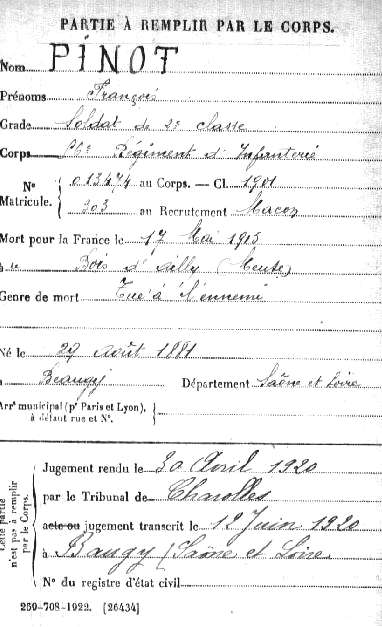 PARTIE À REMPLIR PAR LE CORPS.
Nom PINOT
Prénoms François
Grade Soldat de 2e classe
Corps Régiment d'Infanterie
N° Matricule. { 013474 au Corps. — Cl. 1901
303 au Recrutement Macon
Mort pour la France le 17 Mai 1915
à Bois d'Ailly (Meuse)
Genre de mort Tué à l'ennemi
Né le 29 Août 1881
à Beaugy Département Saône et Loire
Arrt municipal (pr Paris et Lyon), à défaut rue et N°.
Cette partie n'est pas à remplir par le Corps.
Jugement rendu le 30 Avril 1920
par le Tribunal de Charolles
acte ou jugement transcrit le 12 Juin 1920
à Baugy (Saône et Loire
N° du registre d'état civil
259-708-1922. [26434]